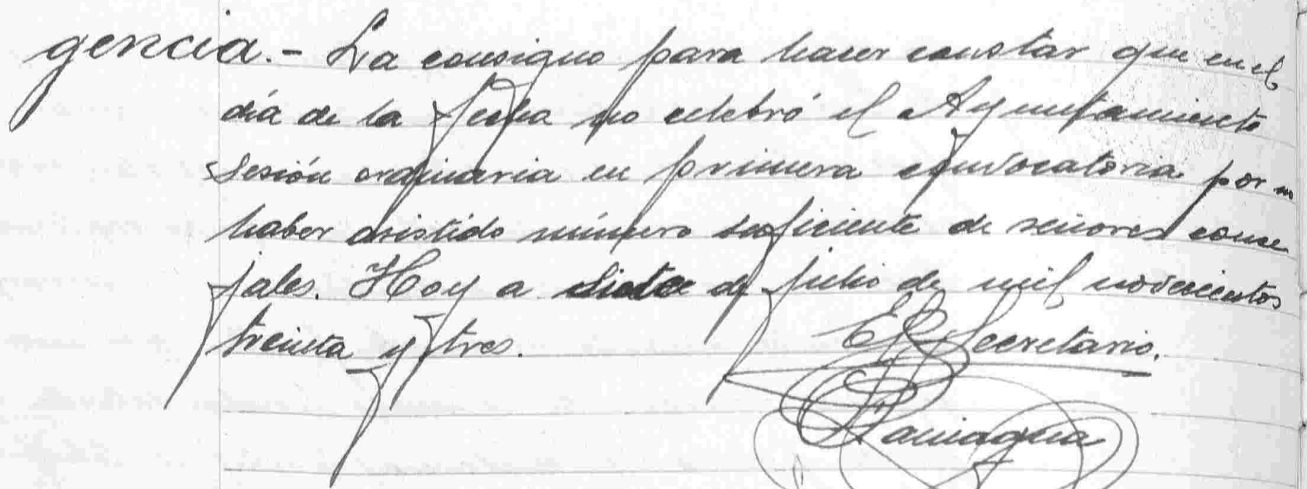 gencia.- La consigno para hacer constar que en el
día de la fecha no celebró el Ayuntamiento
sesión ordinaria en primera convocatoria por no
haber asistido número suficiente de señores conce
jales. Hoy a siete de julio de mil novecientos
treinta y tres.
El Secretario.
Paniagua